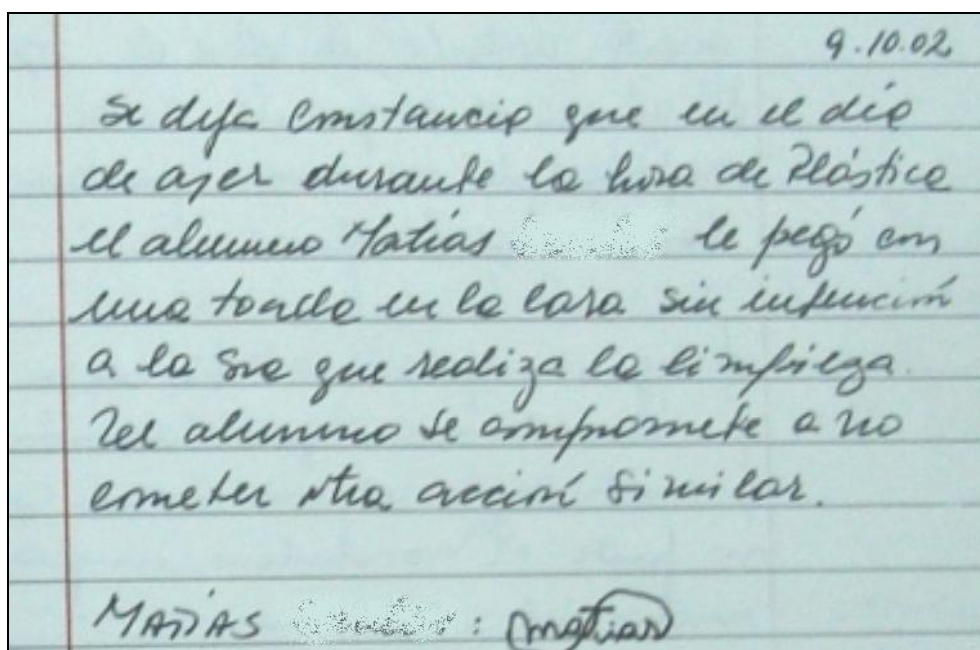 9.10.02
Se deja constancia que en el día
de ayer durante la hora de Plástica
el alumno Matías le pegó con
una toalla en la cara sin intención
a la Sra que realiza la limpieza.
El alumno se compromete a no
cometer otra acción similar.
MATÍAS : Matias